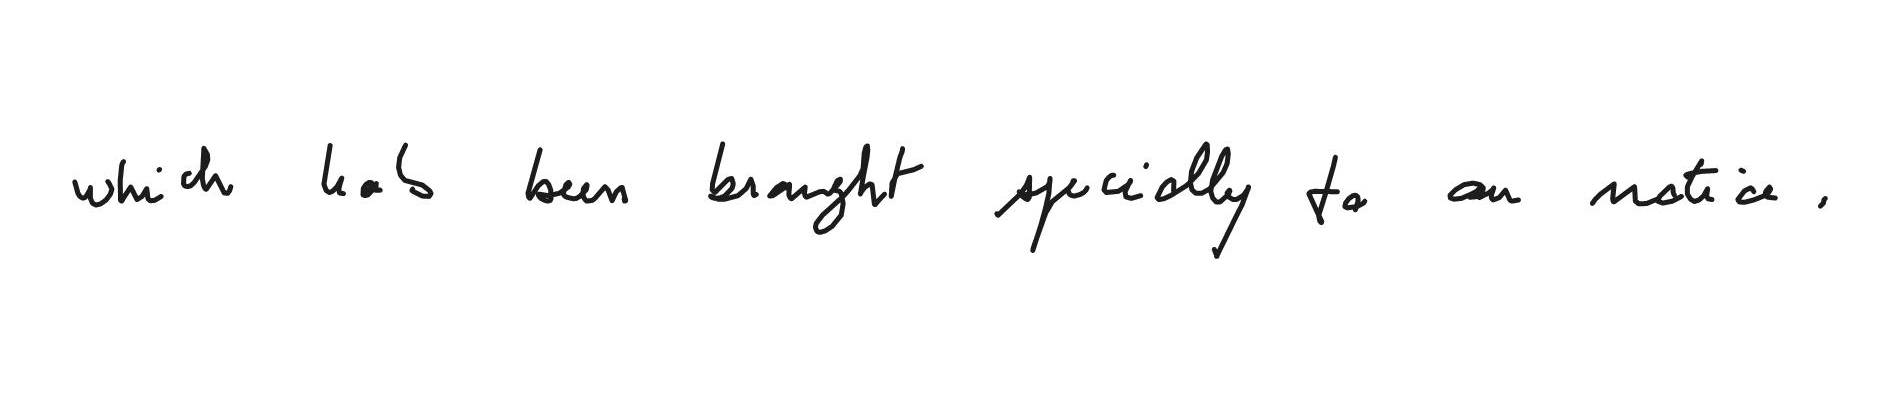 which has been brought specially to our notice.